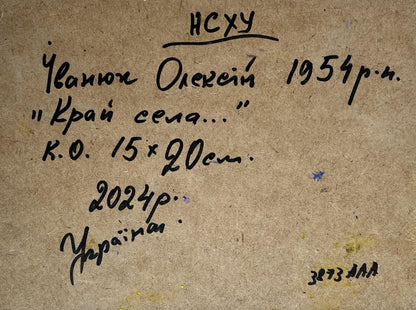 НСХУ
Іванюк Олексій 1954р.н.
"Край села..."
к.о. 15×20см.
2024р.
Україна.
3873ААА